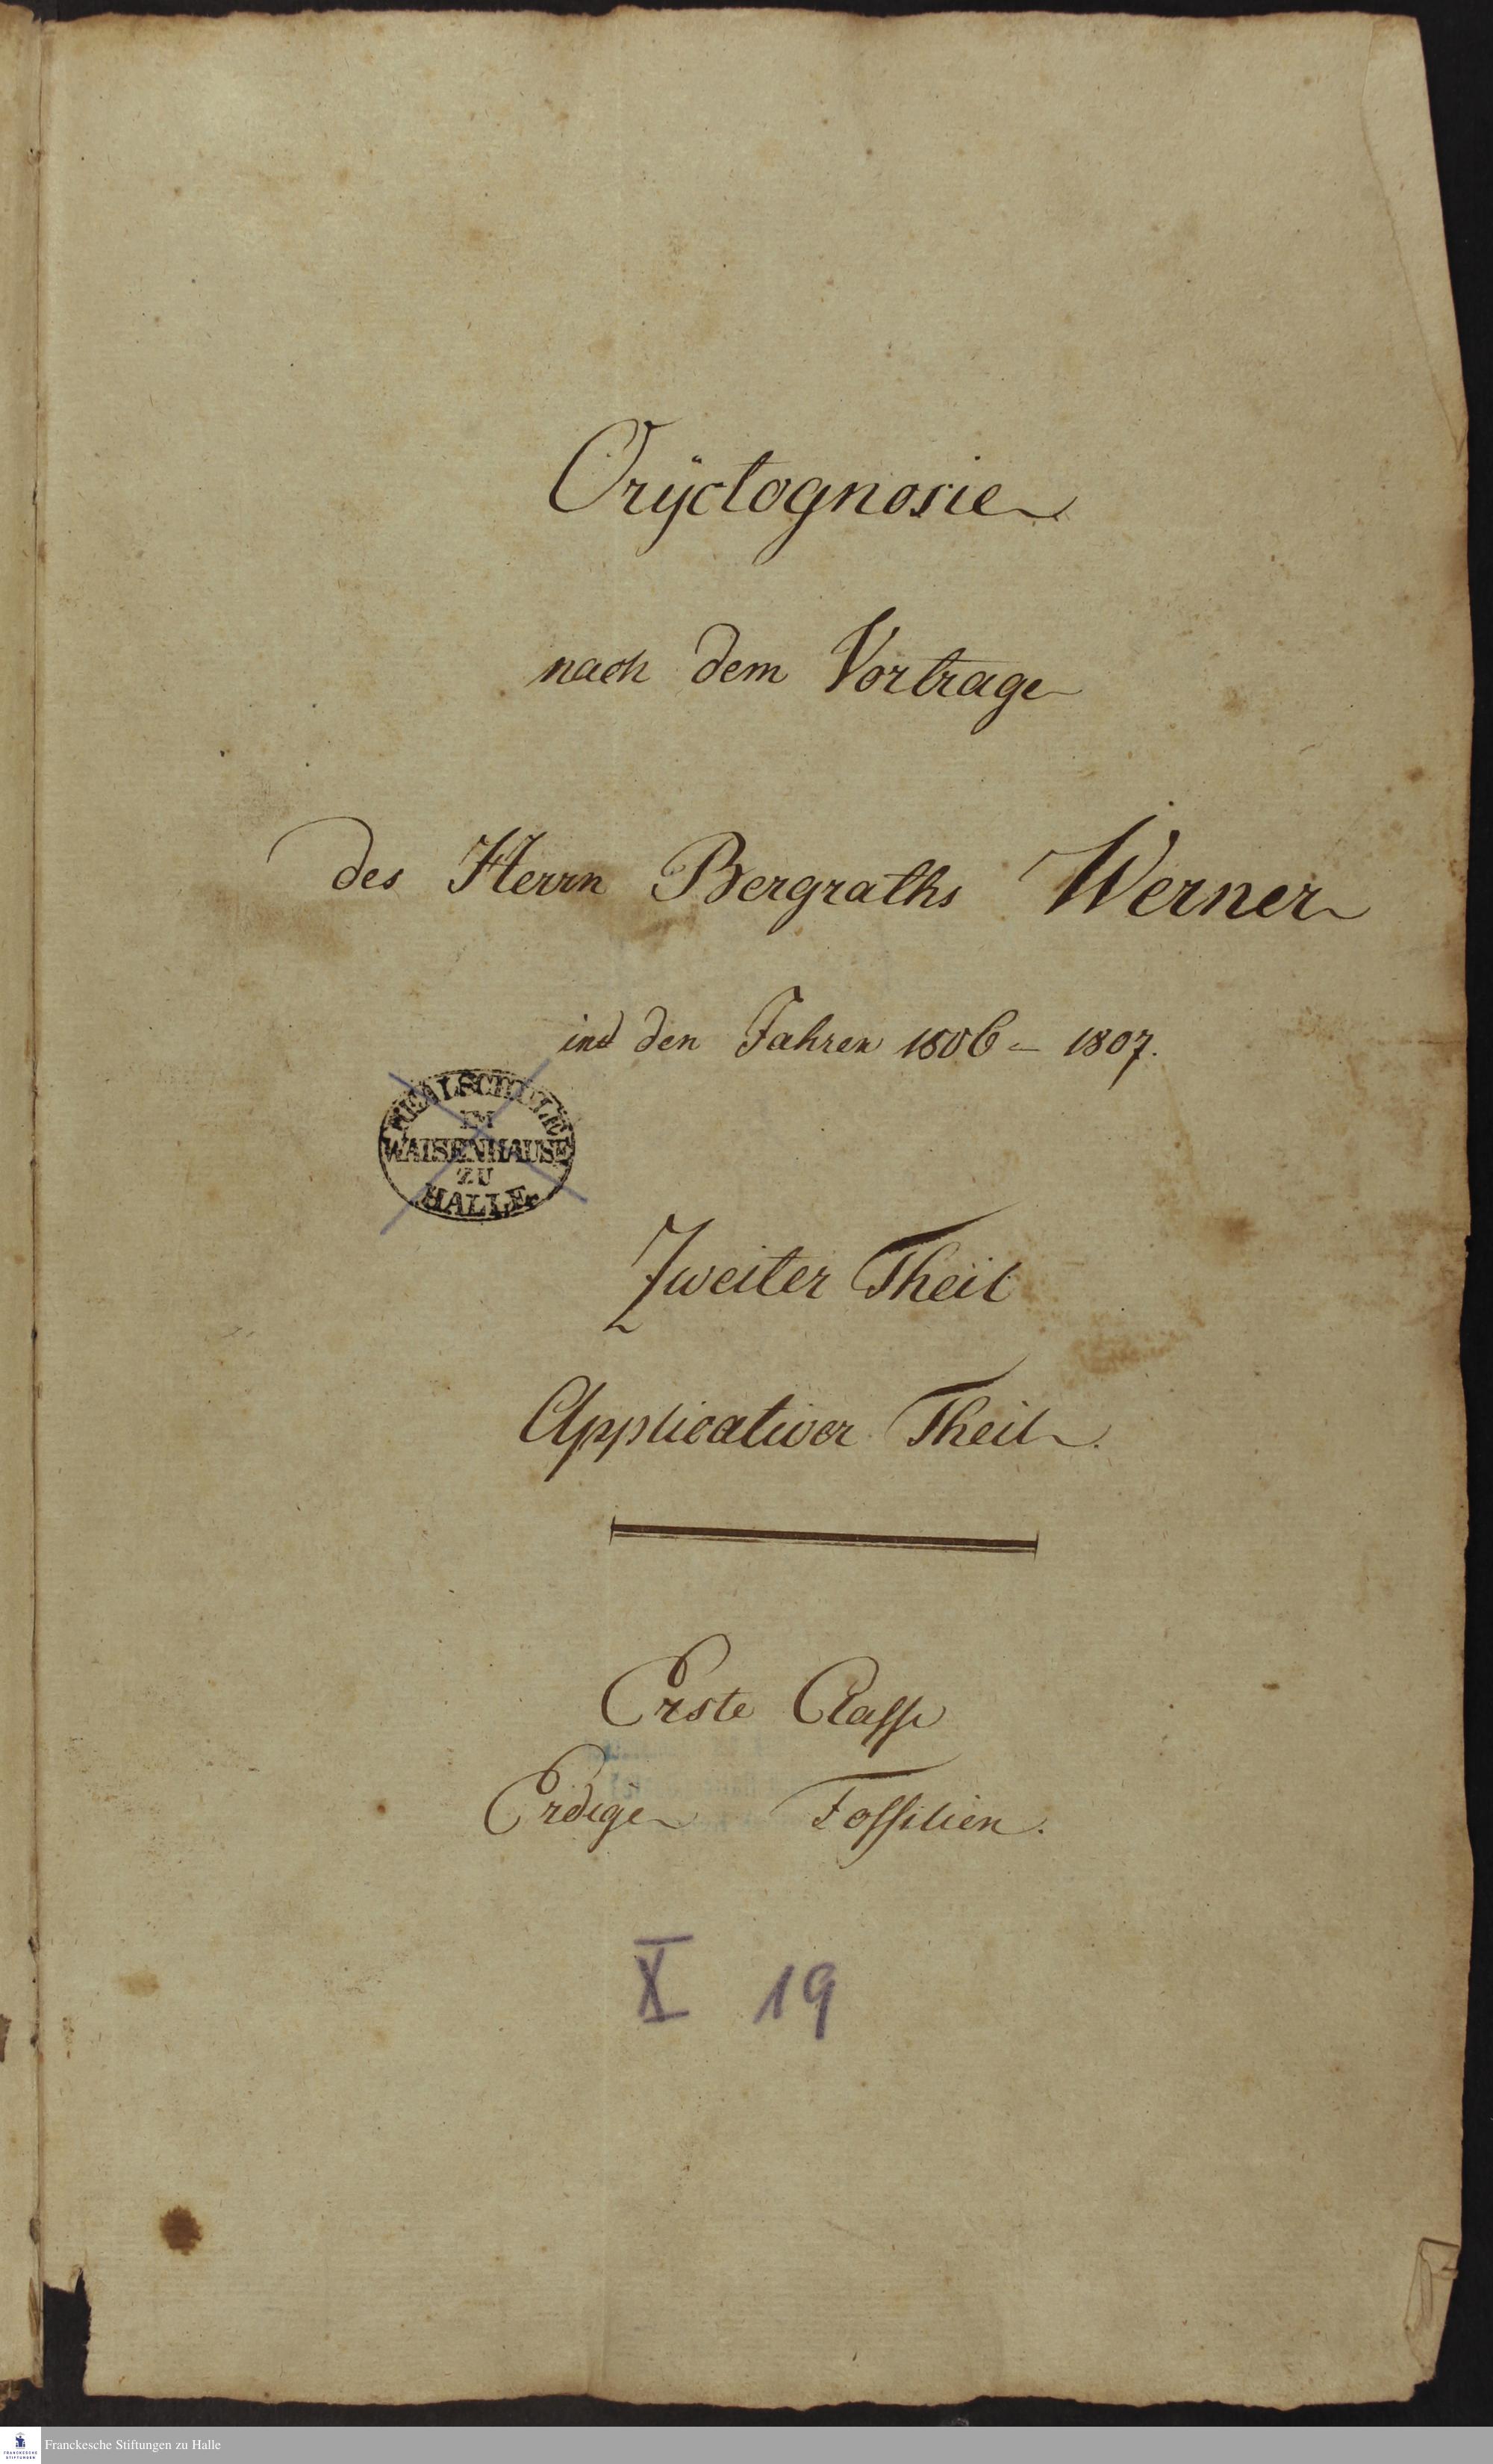 Orÿctognosie
nach dem Vortrage
des Herrn Bergraths Werner
in den Jahren 1806 – 1807.
REALSCHULE
IM
WAISENHAUSE
ZU
HALLE
Zweiter Theil
Applicativer Theil.
Erste Classe
Erdige Fossilien.
X 19
FRANCKESCHE
STIFTUNGEN
Franckesche Stiftungen zu Halle